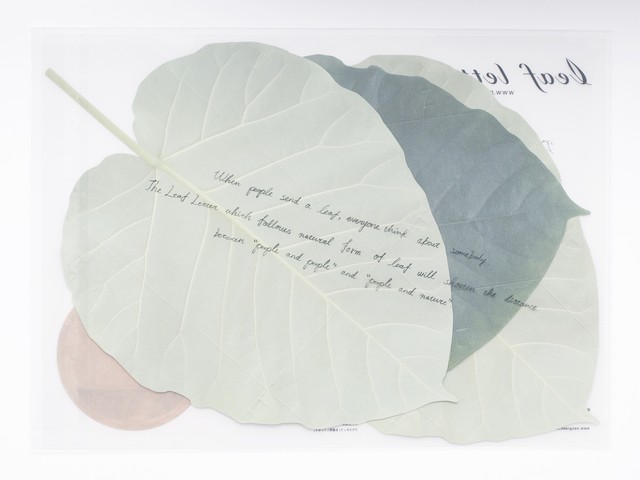 leaf
When people send a leaf, everyone think about somebody
The Leaf Letter which follows natural form of leaf will shorten the distance
between "people and people" and "people and nature"